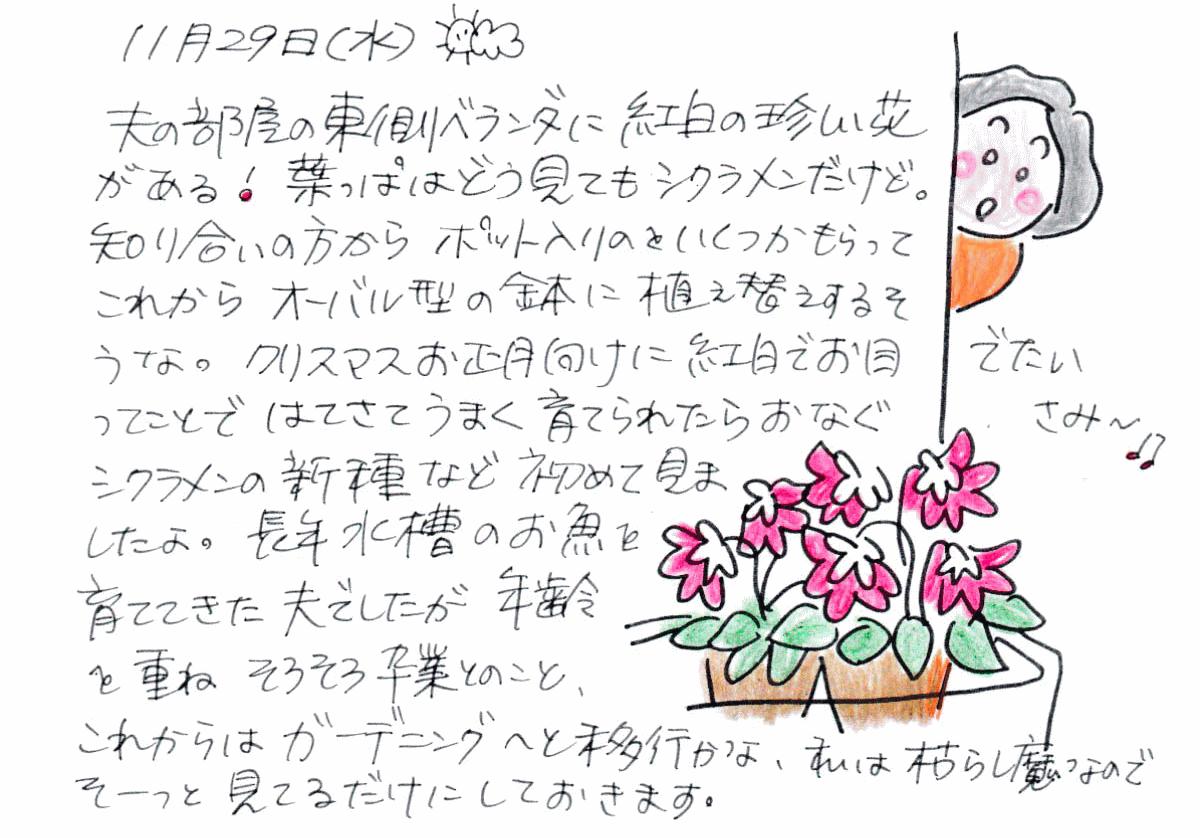 11月29日(水)
夫の部屋の東側ベランダに紅白の珍しい花
がある!葉っぱはどう見てもシクラメンだけど。
知り合いの方からポット入りのをいくつかもらって
これからオーバル型の鉢に植え替えするそ
うな。クリスマスお正月向けに紅白でお目でたい
ってことではてさてうまく育てられたらおなぐさみ〜♫
シクラメンの新種など初めて見ま
したよ。長年水槽のお魚を
育ててきた夫でしたが年齢
を重ねそろそろ卒業とのこと、
これからはガーデニングへと移行かな、私は枯らし魔なので
そーっと見てるだけにしておきます。